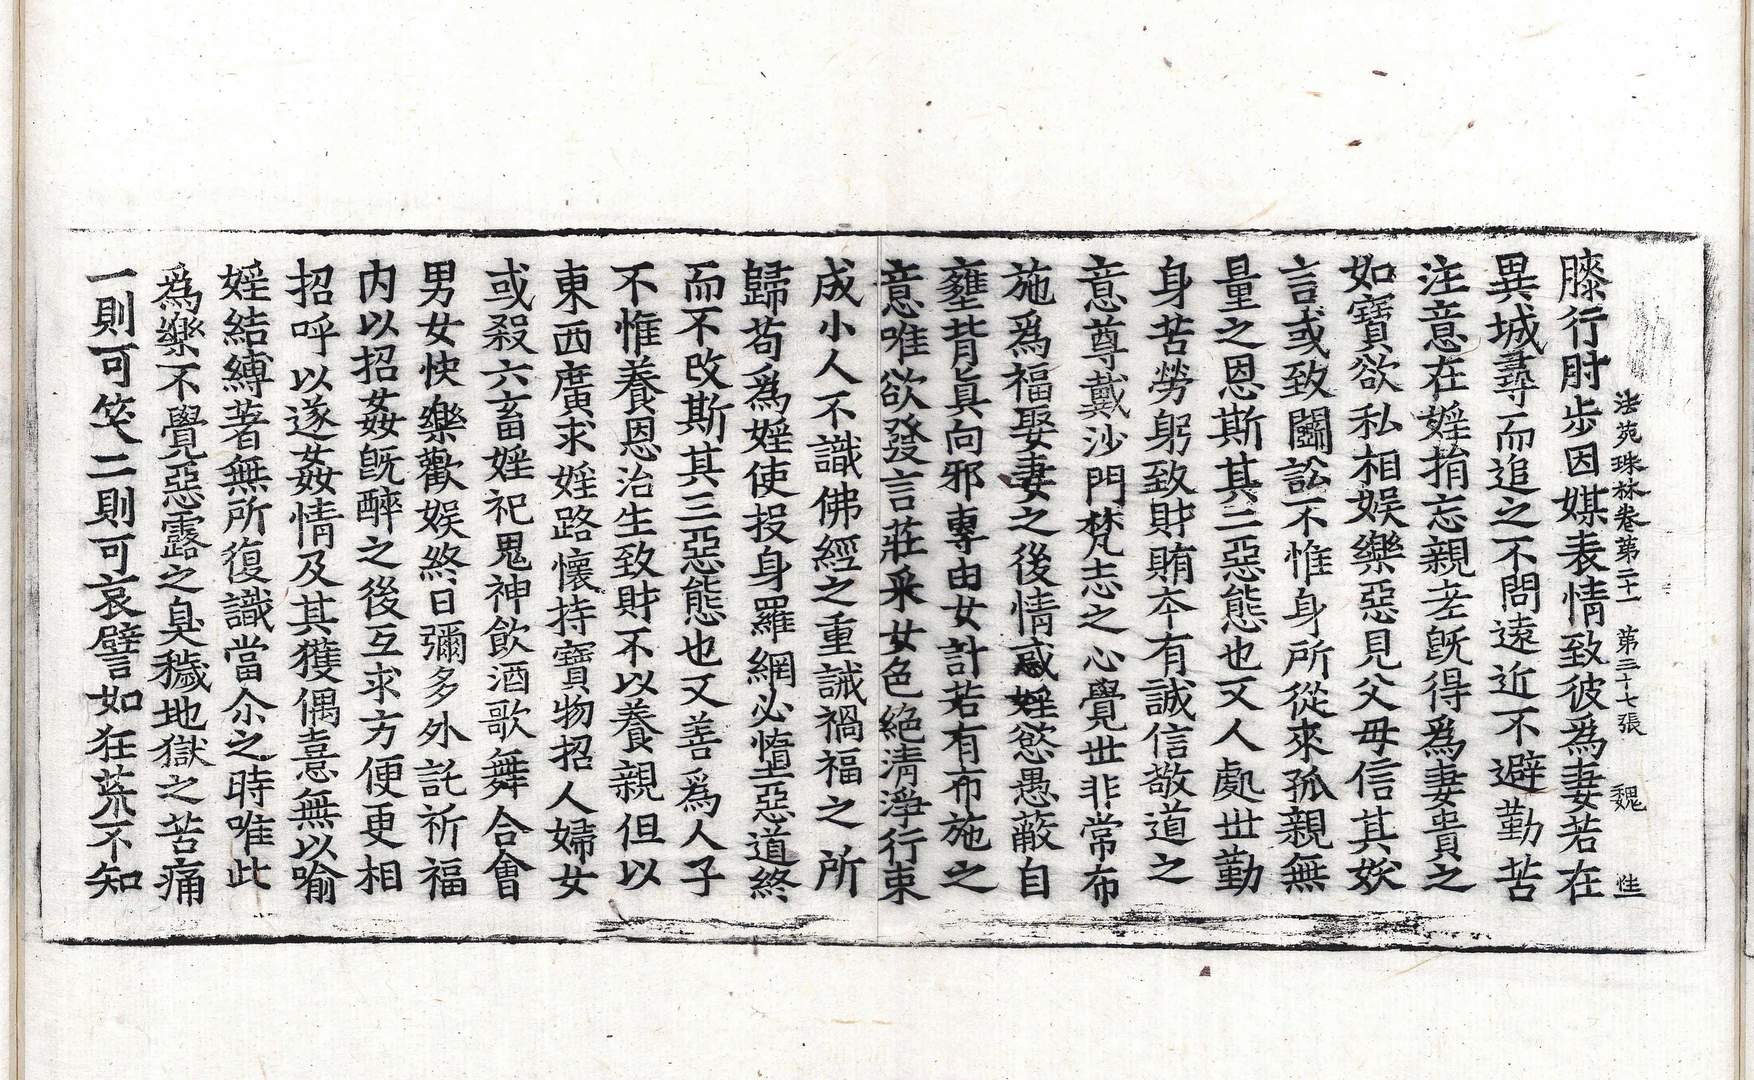 法苑珠林卷第二十一　第三十七張　魏　性
膝行肘步因媒表情致彼爲妻若在
異城尋而追之不問遠近不避勤苦
注意在婬捐忘親老旣得爲妻貴之
如寶欲私相娛樂惡見父母信其妖
言或致鬪訟不惟身所從來孤親無
量之恩斯其二惡態也又人處世勤
身苦勞躬致財賄夲有誠信敬道之
意尊戴沙門梵志之心覺世非常布
施爲福娶妻之後情惑婬慾愚蔽自
壅背眞向邪專由女計若有布施之
意唯欲發言莊采女色絕淸淨行束
成小人不識佛經之重誡禍福之所
歸苟爲婬使投身羅網必墮惡道終
而不改斯其三惡態也又善爲人子
不惟養恩治生致財不以養親但以
東西廣求婬路懷持寶物招人婦女
或殺六畜婬祀鬼神飮酒歌舞合會
男女快樂歡娛終日彌多外託祈福
內以招姦旣醉之後互求方便更相
招呼以遂姦情及其獲偶喜無以喻
婬結縛著無所復識當尒之時唯此
爲樂不覺惡露之臭穢地獄之苦痛
一則可笑二則可哀譬如狂荒不知